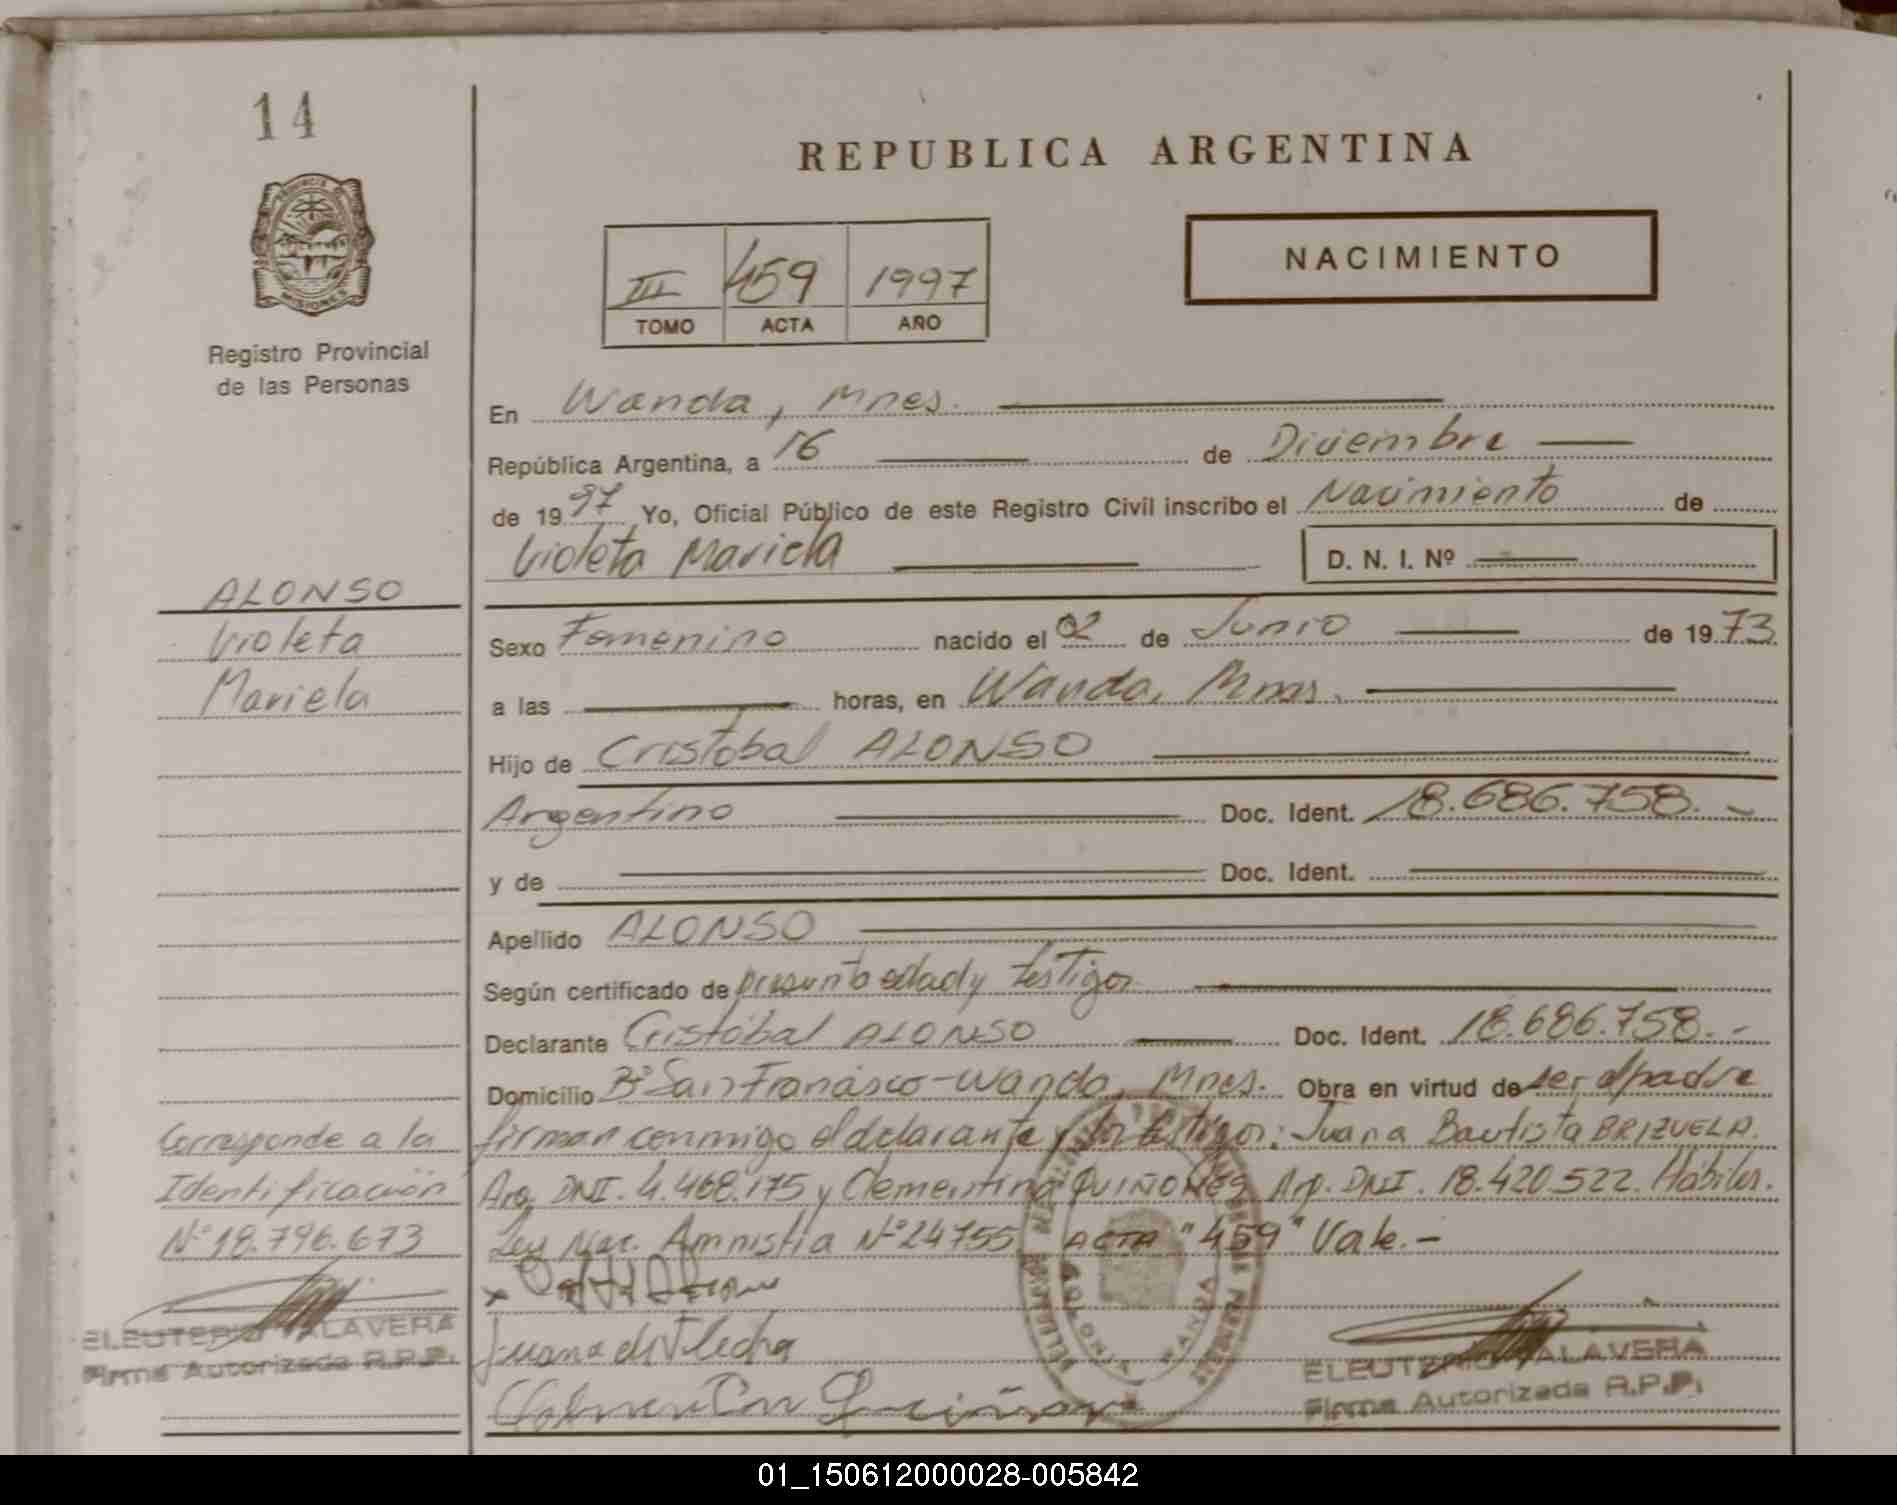 14
REPUBLICA ARGENTINA
PROVINCIA DE
MISIONES
Registro Provincial
de las Personas
III 459 1997
TOMO ACTA AÑO
NACIMIENTO
En Wanda, Mnes.
República Argentina, a 16 de Diciembre
de 1997 Yo, Oficial Público de este Registro Civil inscribo el Nacimiento de
Violeta Mariela D. N. I. Nº
ALONSO
Violeta
Mariela
Sexo Femenino nacido el 02 de Junio de 1973
a las horas, en Wanda, Mnes.
Hijo de Cristobal ALONSO
Argentino Doc. Ident. 18.686.758.-
y de Doc. Ident.
Apellido ALONSO
Según certificado de presunta edad y testigos
Declarante Cristóbal ALONSO Doc. Ident. 18.686.758.-
Domicilio Bº San Francisco-Wanda, Mnes. Obra en virtud de ser el padre
firman conmigo el declarante y los testigos: Juana Bautista BRIZUELA.
Arg. DNI. 4.468.175 y Clementina QUIÑONES Arg. DNI. 18.420.522. Hábiles.
Ley Nac. Amnistia Nº 24755 ACTA "459" Vale.-
Corresponde a la
Identificación
Nº 18.796.673
ELEUTERIO TALAVERA
Firma Autorizada R.P.P.
Juana
ELEUTERIO TALAVERA
Firma Autorizada R.P.P.
01_150612000028-005842